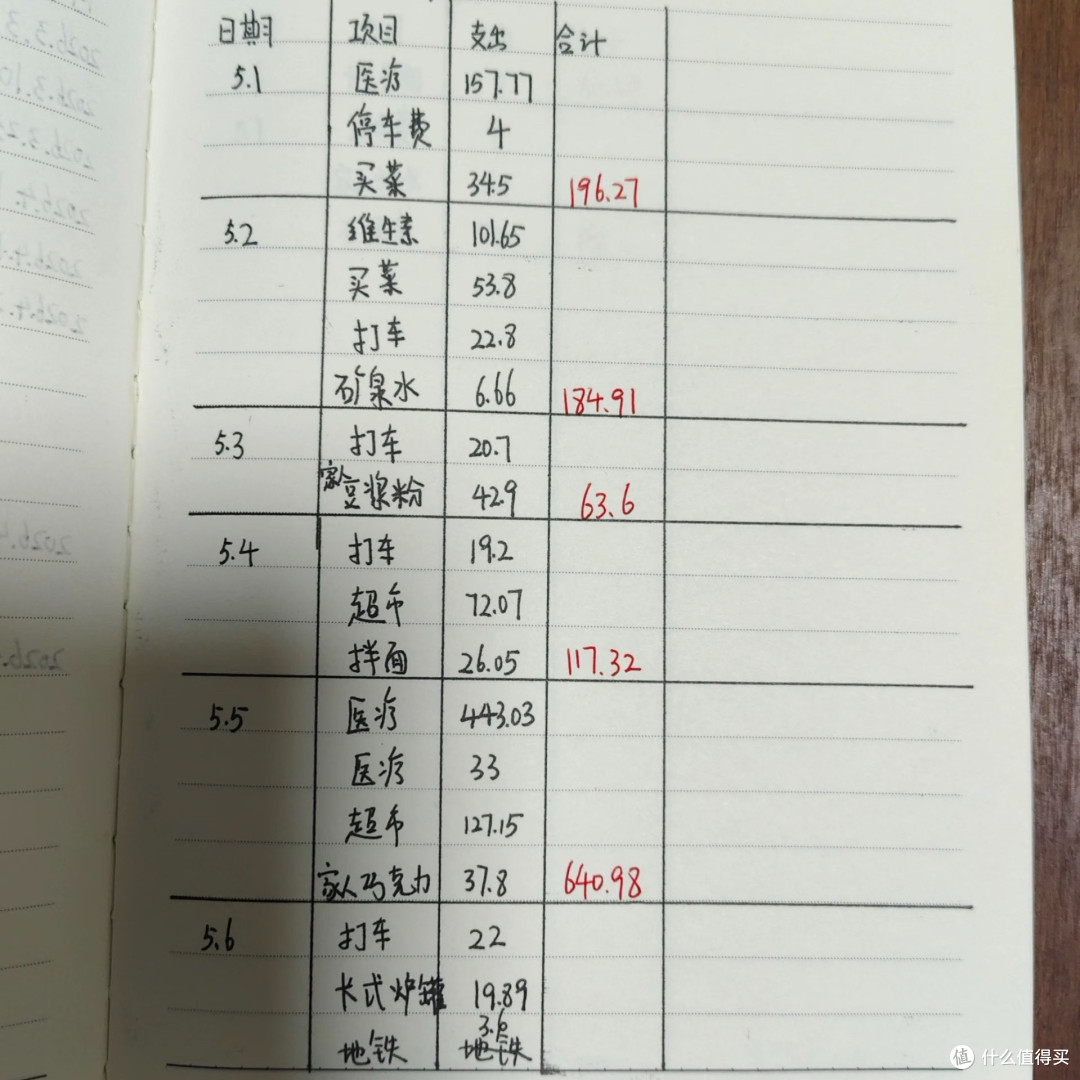 日期 项目 支出 合计
5.1 医疗 157.77
停车费 4
买菜 34.5 196.27
5.2 维生素 101.65
买菜 53.8
打车 22.8
矿泉水 6.66 184.91
5.3 打车 20.7
家人豆浆粉 42.9 63.6
5.4 打车 19.2
超市 72.07
拌面 26.05 117.32
5.5 医疗 443.03
医疗 33
超市 127.15
家人巧克力 37.8 640.98
5.6 打车 22
卡式炉罐 19.89
地铁 3.6
值 什么值得买